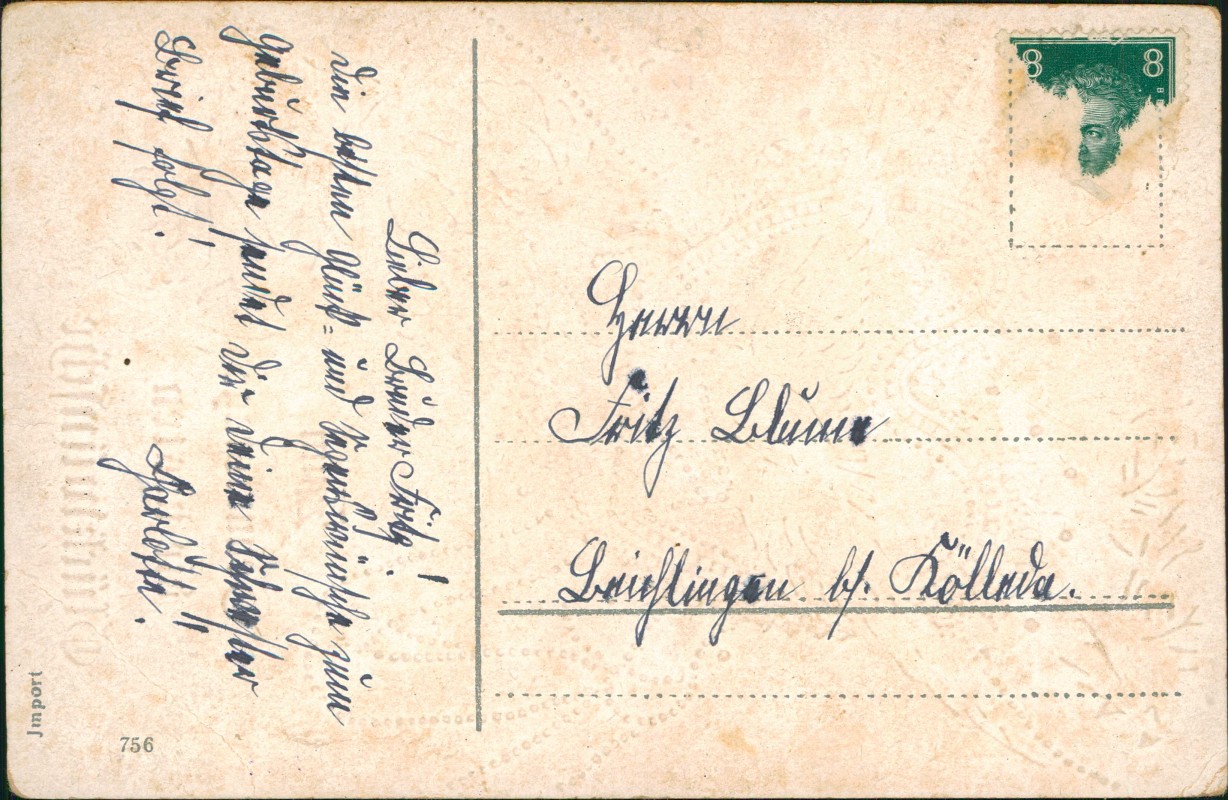 Lieber Bruder Fritz!
Die besten Glück- und Segenswünsche zum
Geburtstage sendet Dir Deine Schwester
Brief folgt!
Herrn
Fritz Blume
Beichlingen b/. Kölleda.
8 8
Jmport
756